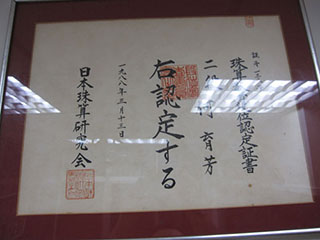 珠算 位認定証書
二段 育芳
右認定する
一九八八年三月十三日
日本珠算研究会